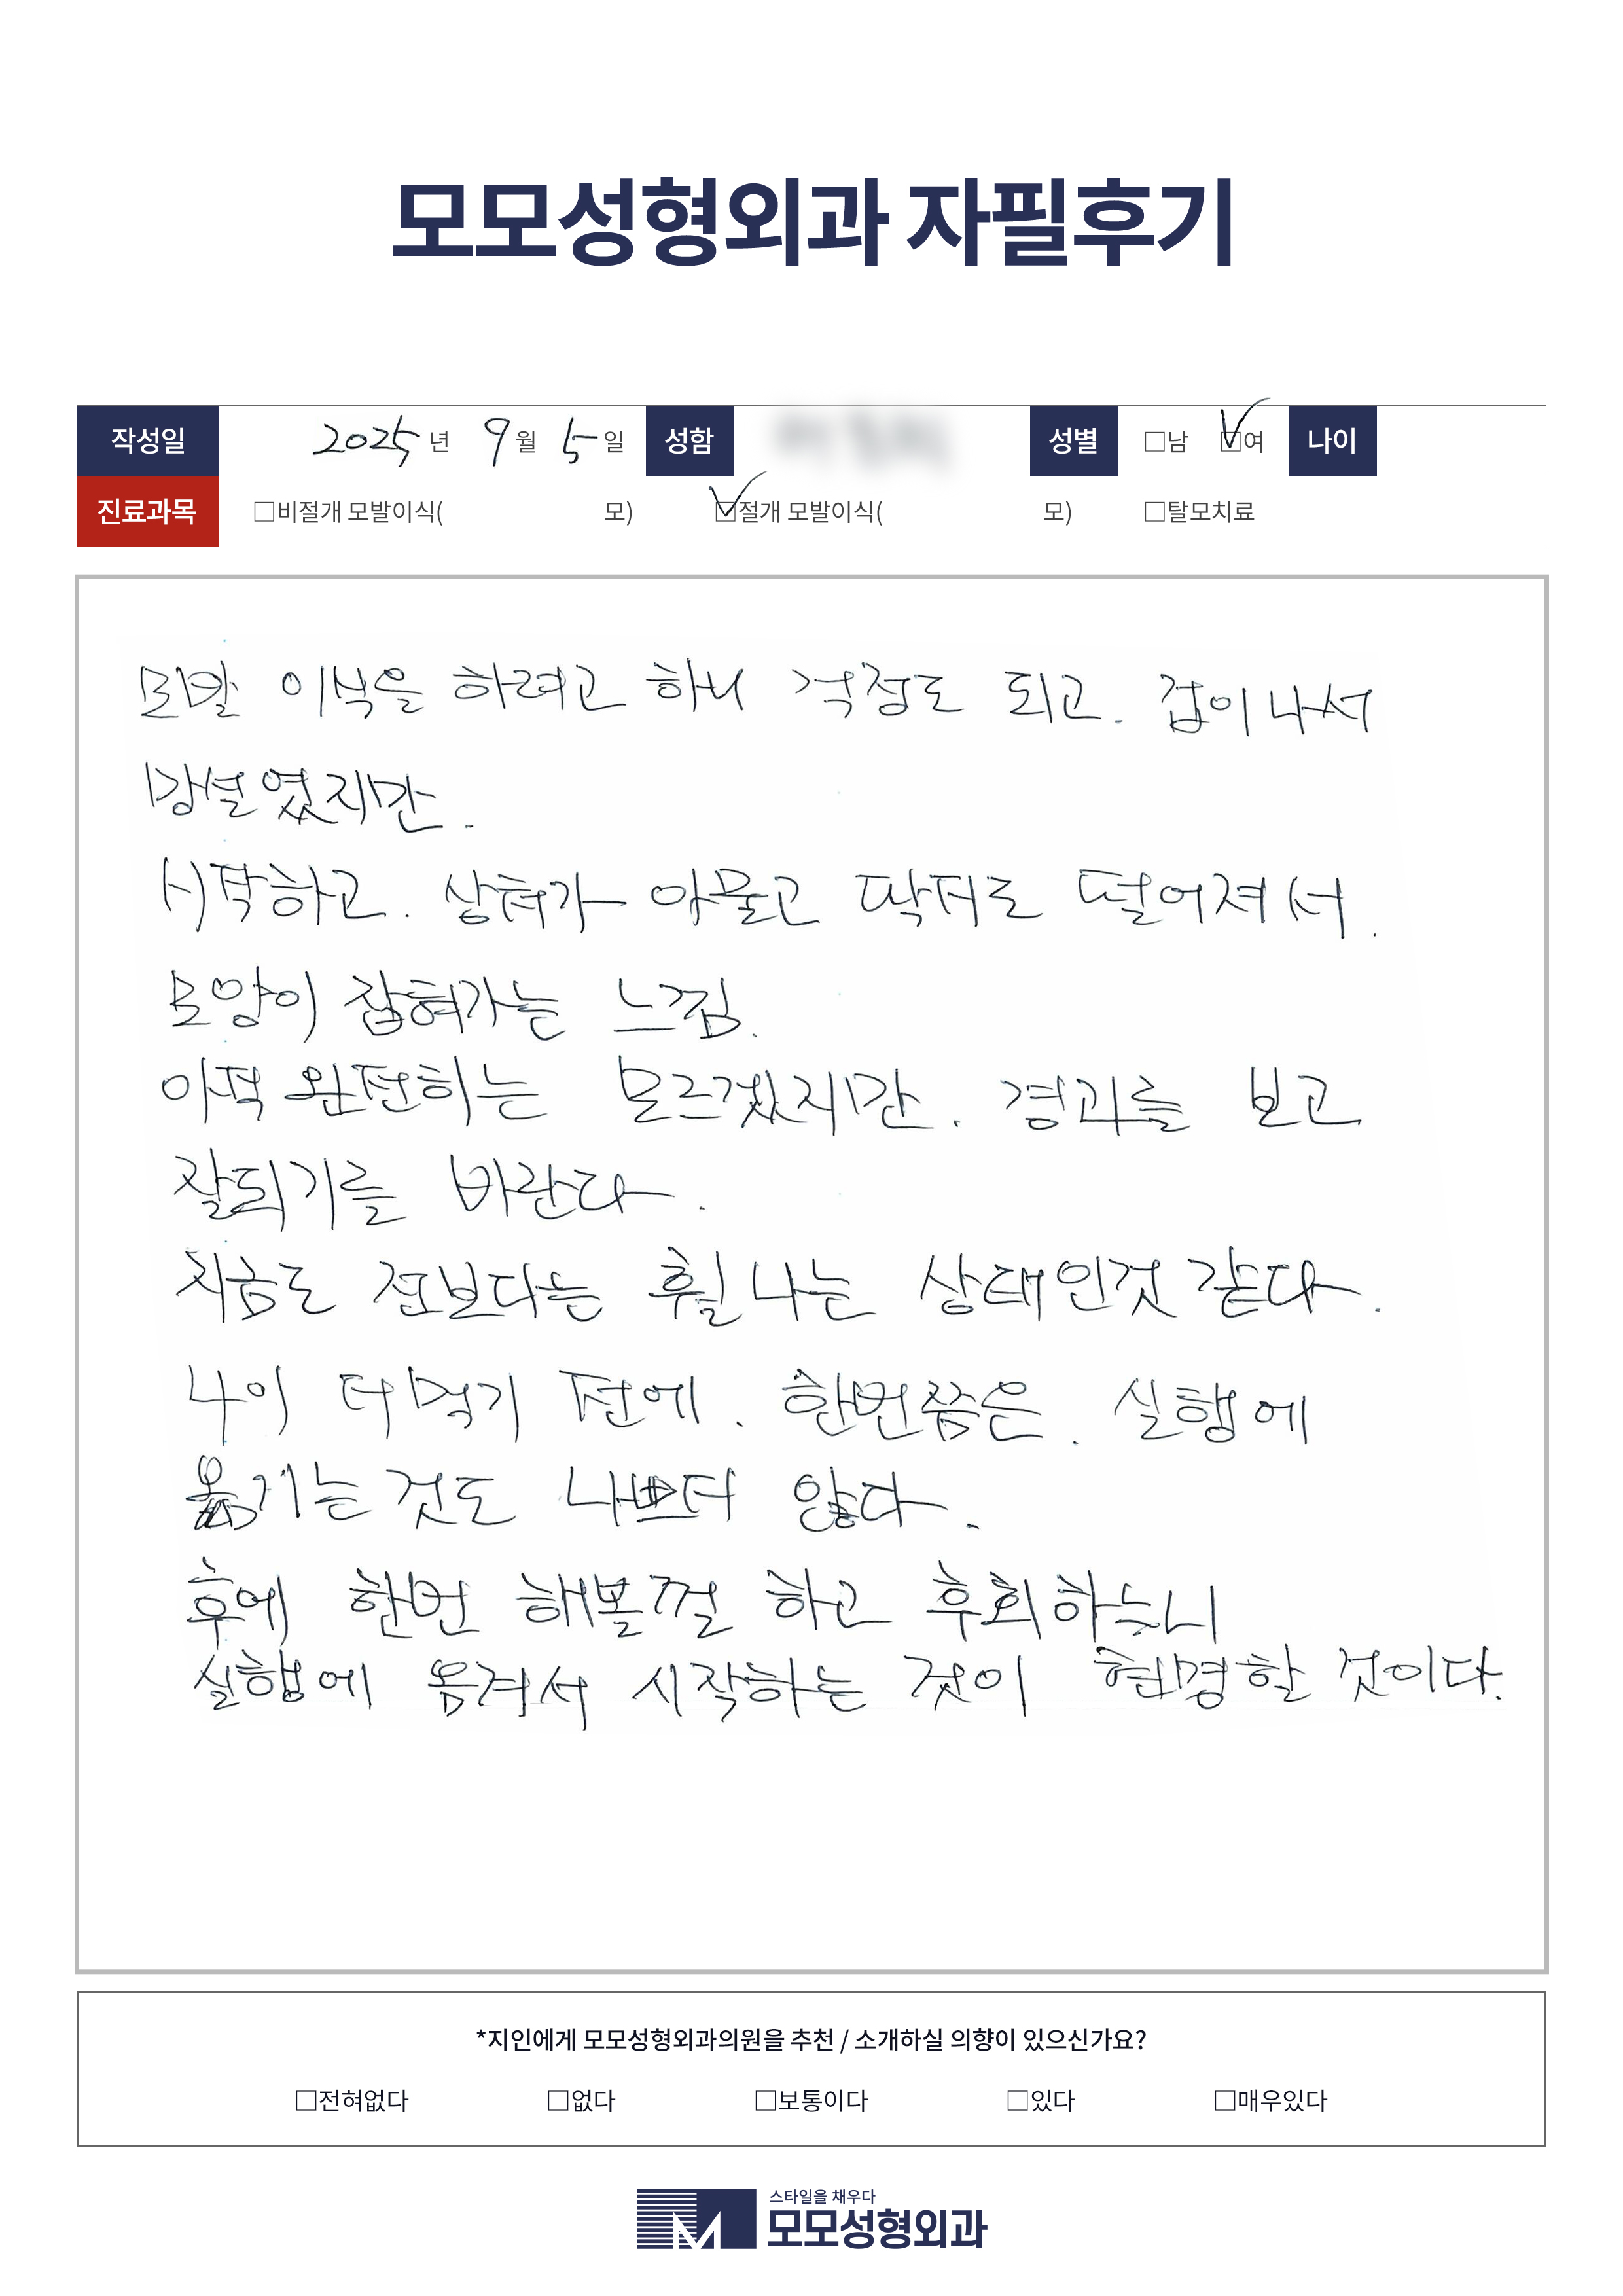 모모성형외과 자필후기
작성일 2025년 9월 5일 성함 성별 □남 ☑여 나이
진료과목 □비절개 모발이식( 모) ☑절개 모발이식( 모) □탈모치료
모발 이식을 하려고 하니 걱정도 되고. 겁이 나서
망설였지만.
시작하고. 상처가 아물고 딱지도 떨어져서.
모양이 잡혀가는 느낌.
아직 완전히는 모르겠지만. 경과를 보고
잘되기를 바란다.
지금도 전보다는 훨 나는 상태인것 같다.
나이 더 먹기 전에. 한번쯤은. 실행에
옮기는 것도 나쁘디 않다.
후에 한번 해볼껄 하고 후회하느니
실행에 옴겨서 시작하는 것이 현명할 것이다.
*지인에게 모모성형외과의원을 추천 / 소개하실 의향이 있으신가요?
□전혀없다 □없다 □보통이다 □있다 □매우있다
스타일을 채우다
모모성형외과